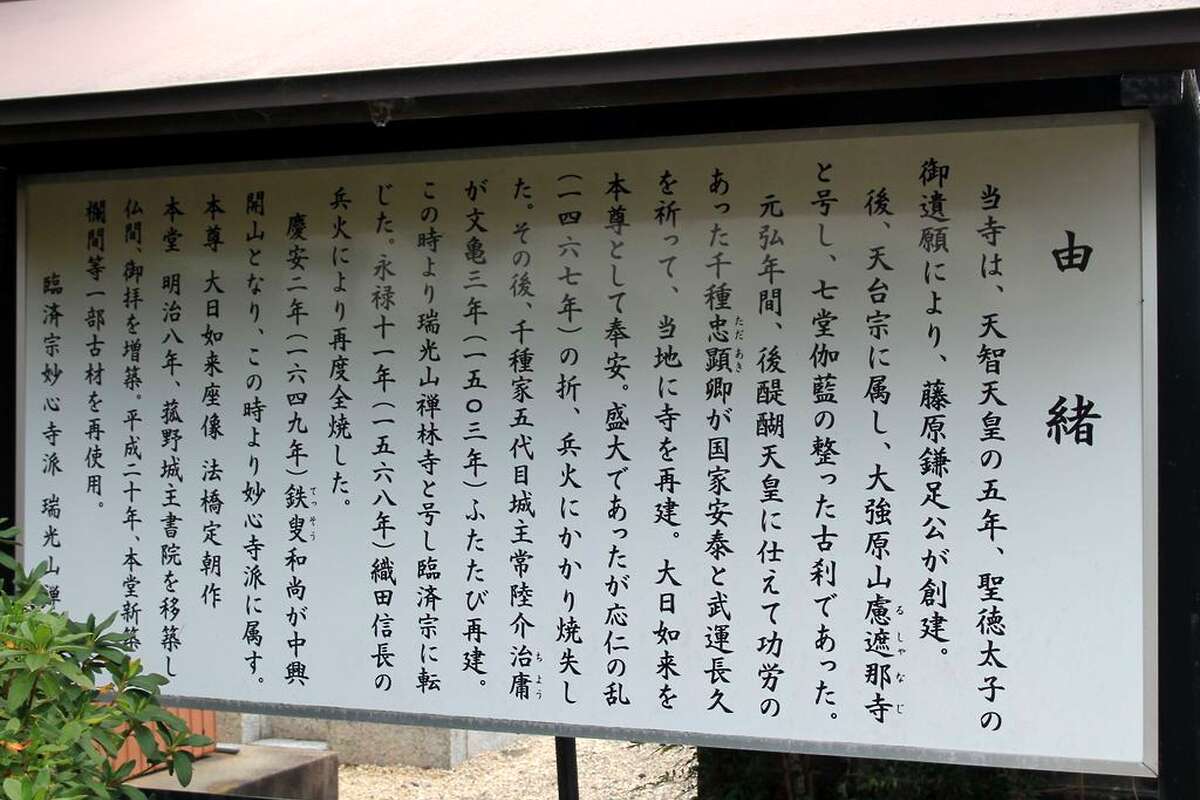 由緒
当寺は、天智天皇の五年、聖徳太子の
御遺願により、藤原鎌足公が創建。
後、天台宗に属し、大強原山慮遮那寺
るしゃなじ
と号し、七堂伽藍の整った古刹であった。
元弘年間、後醍醐天皇に仕えて功労の
あった千種忠顕卿が国家安泰と武運長久
ただあき
を祈って、当地に寺を再建。大日如来を
本尊として奉安。盛大であったが応仁の乱
(一四六七年)の折、兵火にかかり焼失し
た。その後、千種家五代目城主常陸介治庸
ちよう
が文亀三年(一五〇三年)ふたたび再建。
この時より瑞光山禅林寺と号し臨済宗に転
じた。永禄十一年(一五六八年)織田信長の
兵火により再度全焼した。
慶安二年(一六四九年)鉄叟和尚が中興
てっそう
開山となり、この時より妙心寺派に属す。
本尊 大日如来座像 法橋定朝作
本堂 明治八年、菰野城主書院を移築し
仏間、御拝を増築。平成二十年、本堂新築
欄間等一部古材を再使用。
臨済宗妙心寺派 瑞光山禅